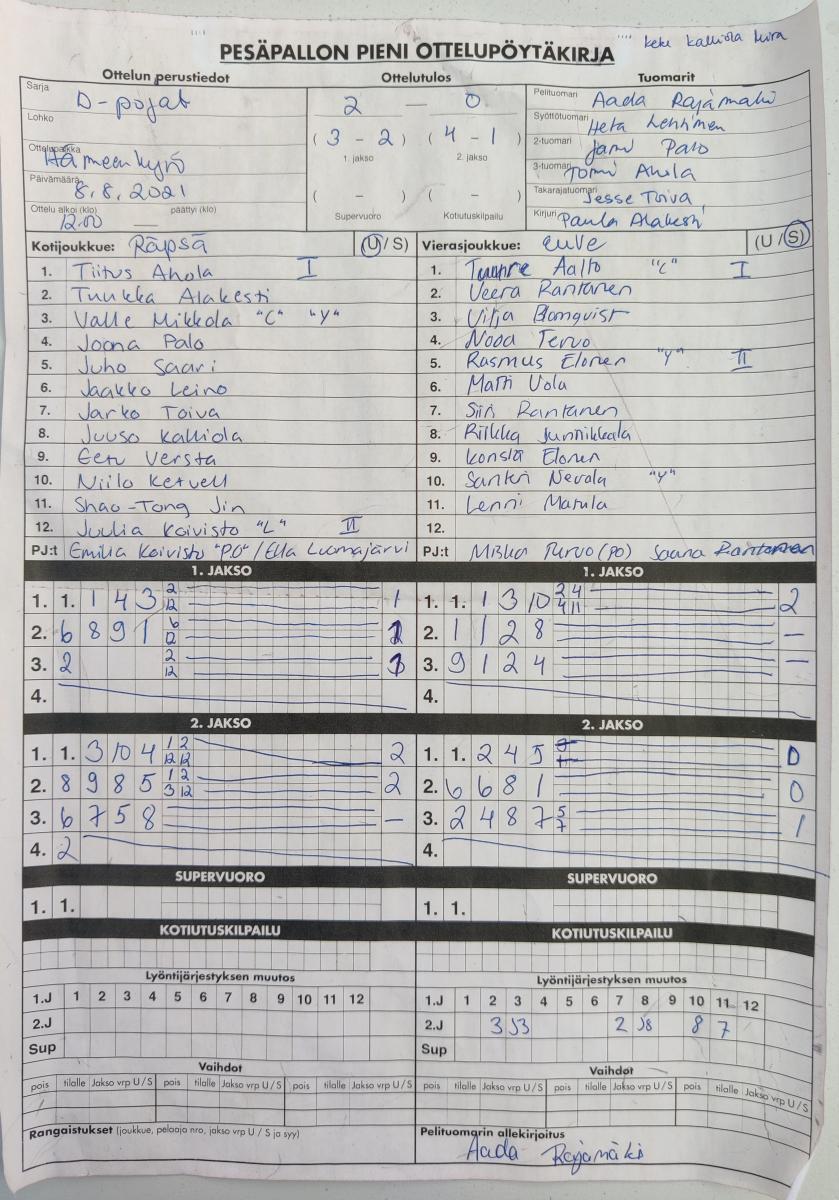 keke kalliola kiira
PESÄPALLON PIENI OTTELUPÖYTÄKIRJA
Ottelun perustiedot Ottelutulos Tuomarit
Sarja D-pojat
Lohko
Ottelupaikka Hämeenkyrö
Päivämäärä 8.8.2021
Ottelu alkoi (klo) 12.00 päättyi (klo) —
2 — 0
(3 - 2) (4 - 1)
1. jakso 2. jakso
( - ) ( - )
Supervuoro Kotiutuskilpailu
Pelituomari Aada Rajämäki
Syöttötuomari Heta Lehtinen
2-tuomari Jami Palo
3-tuomari Tomi Ahola
Takarajatuomari Jesse Toiva
Kirjuri Paula Alakesti
Kotijoukkue: Räpsä (U / S)
1. Tiitus Ahola I
2. Tuukka Alakesti
3. Valle Mikkola "C" "Y"
4. Joona Palo
5. Juho Saari
6. Jaakko Leino
7. Jarko Toiva
8. Juuso Kalliola
9. Eetu Versta
10. Niilo Ketvell
11. Shao-Tong Jin
12. Juulia Koivisto "L" II
PJ:t Emilia Koivisto "PO" / Ella Luomajärvi
Vierasjoukkue: euve (U / S)
1. Tuure Aalto "C" I
2. Veera Rantanen
3. Vilja Blomqvist
4. Nooa Tervo
5. Rasmus Elonen "Y" II
6. Matti Uola
7. Siiri Rantanen
8. Riikka Junnikkala
9. Konsta Elonen
10. Santeri Nevala "Y"
11. Lenni Matula
12.
PJ:t Miska Turvo (PO) Saana Rantanen
1. JAKSO
1. 1. 1 4 3 2 12 1
2. 6 8 9 1 6 12 1
3. 2 2 12 1
4.
1. JAKSO
1. 1. 1 3 10 2 4 4 11 2
2. 1 1 2 8 —
3. 9 1 2 4 —
4.
2. JAKSO
1. 1. 3 10 4 1 2 12 12 2
2. 8 9 8 5 1 2 3 12 2
3. 6 7 5 8 —
4. 2
2. JAKSO
1. 1. 2 4 5 0
2. 6 6 8 1 0
3. 2 4 8 7 5 7 1
4.
SUPERVUORO SUPERVUORO
1. 1. 1. 1.
KOTIUTUSKILPAILU KOTIUTUSKILPAILU
Lyöntijärjestyksen muutos
1.J 1 2 3 4 5 6 7 8 9 10 11 12
2.J
Sup
Lyöntijärjestyksen muutos
1.J 1 2 3 4 5 6 7 8 9 10 11 12
2.J 3 J3 2 J8 8 7
Sup
Vaihdot
pois tilalle Jakso vrp U / S pois tilalle Jakso vrp U / S pois tilalle Jakso vrp U / S
Vaihdot
pois tilalle Jakso vrp U / S pois tilalle Jakso vrp U / S pois tilalle Jakso vrp U / S
Rangaistukset (joukkue, pelaaja nro, jakso vrp U / S ja syy)
Pelituomarin allekirjoitus
Aada Rajämäki